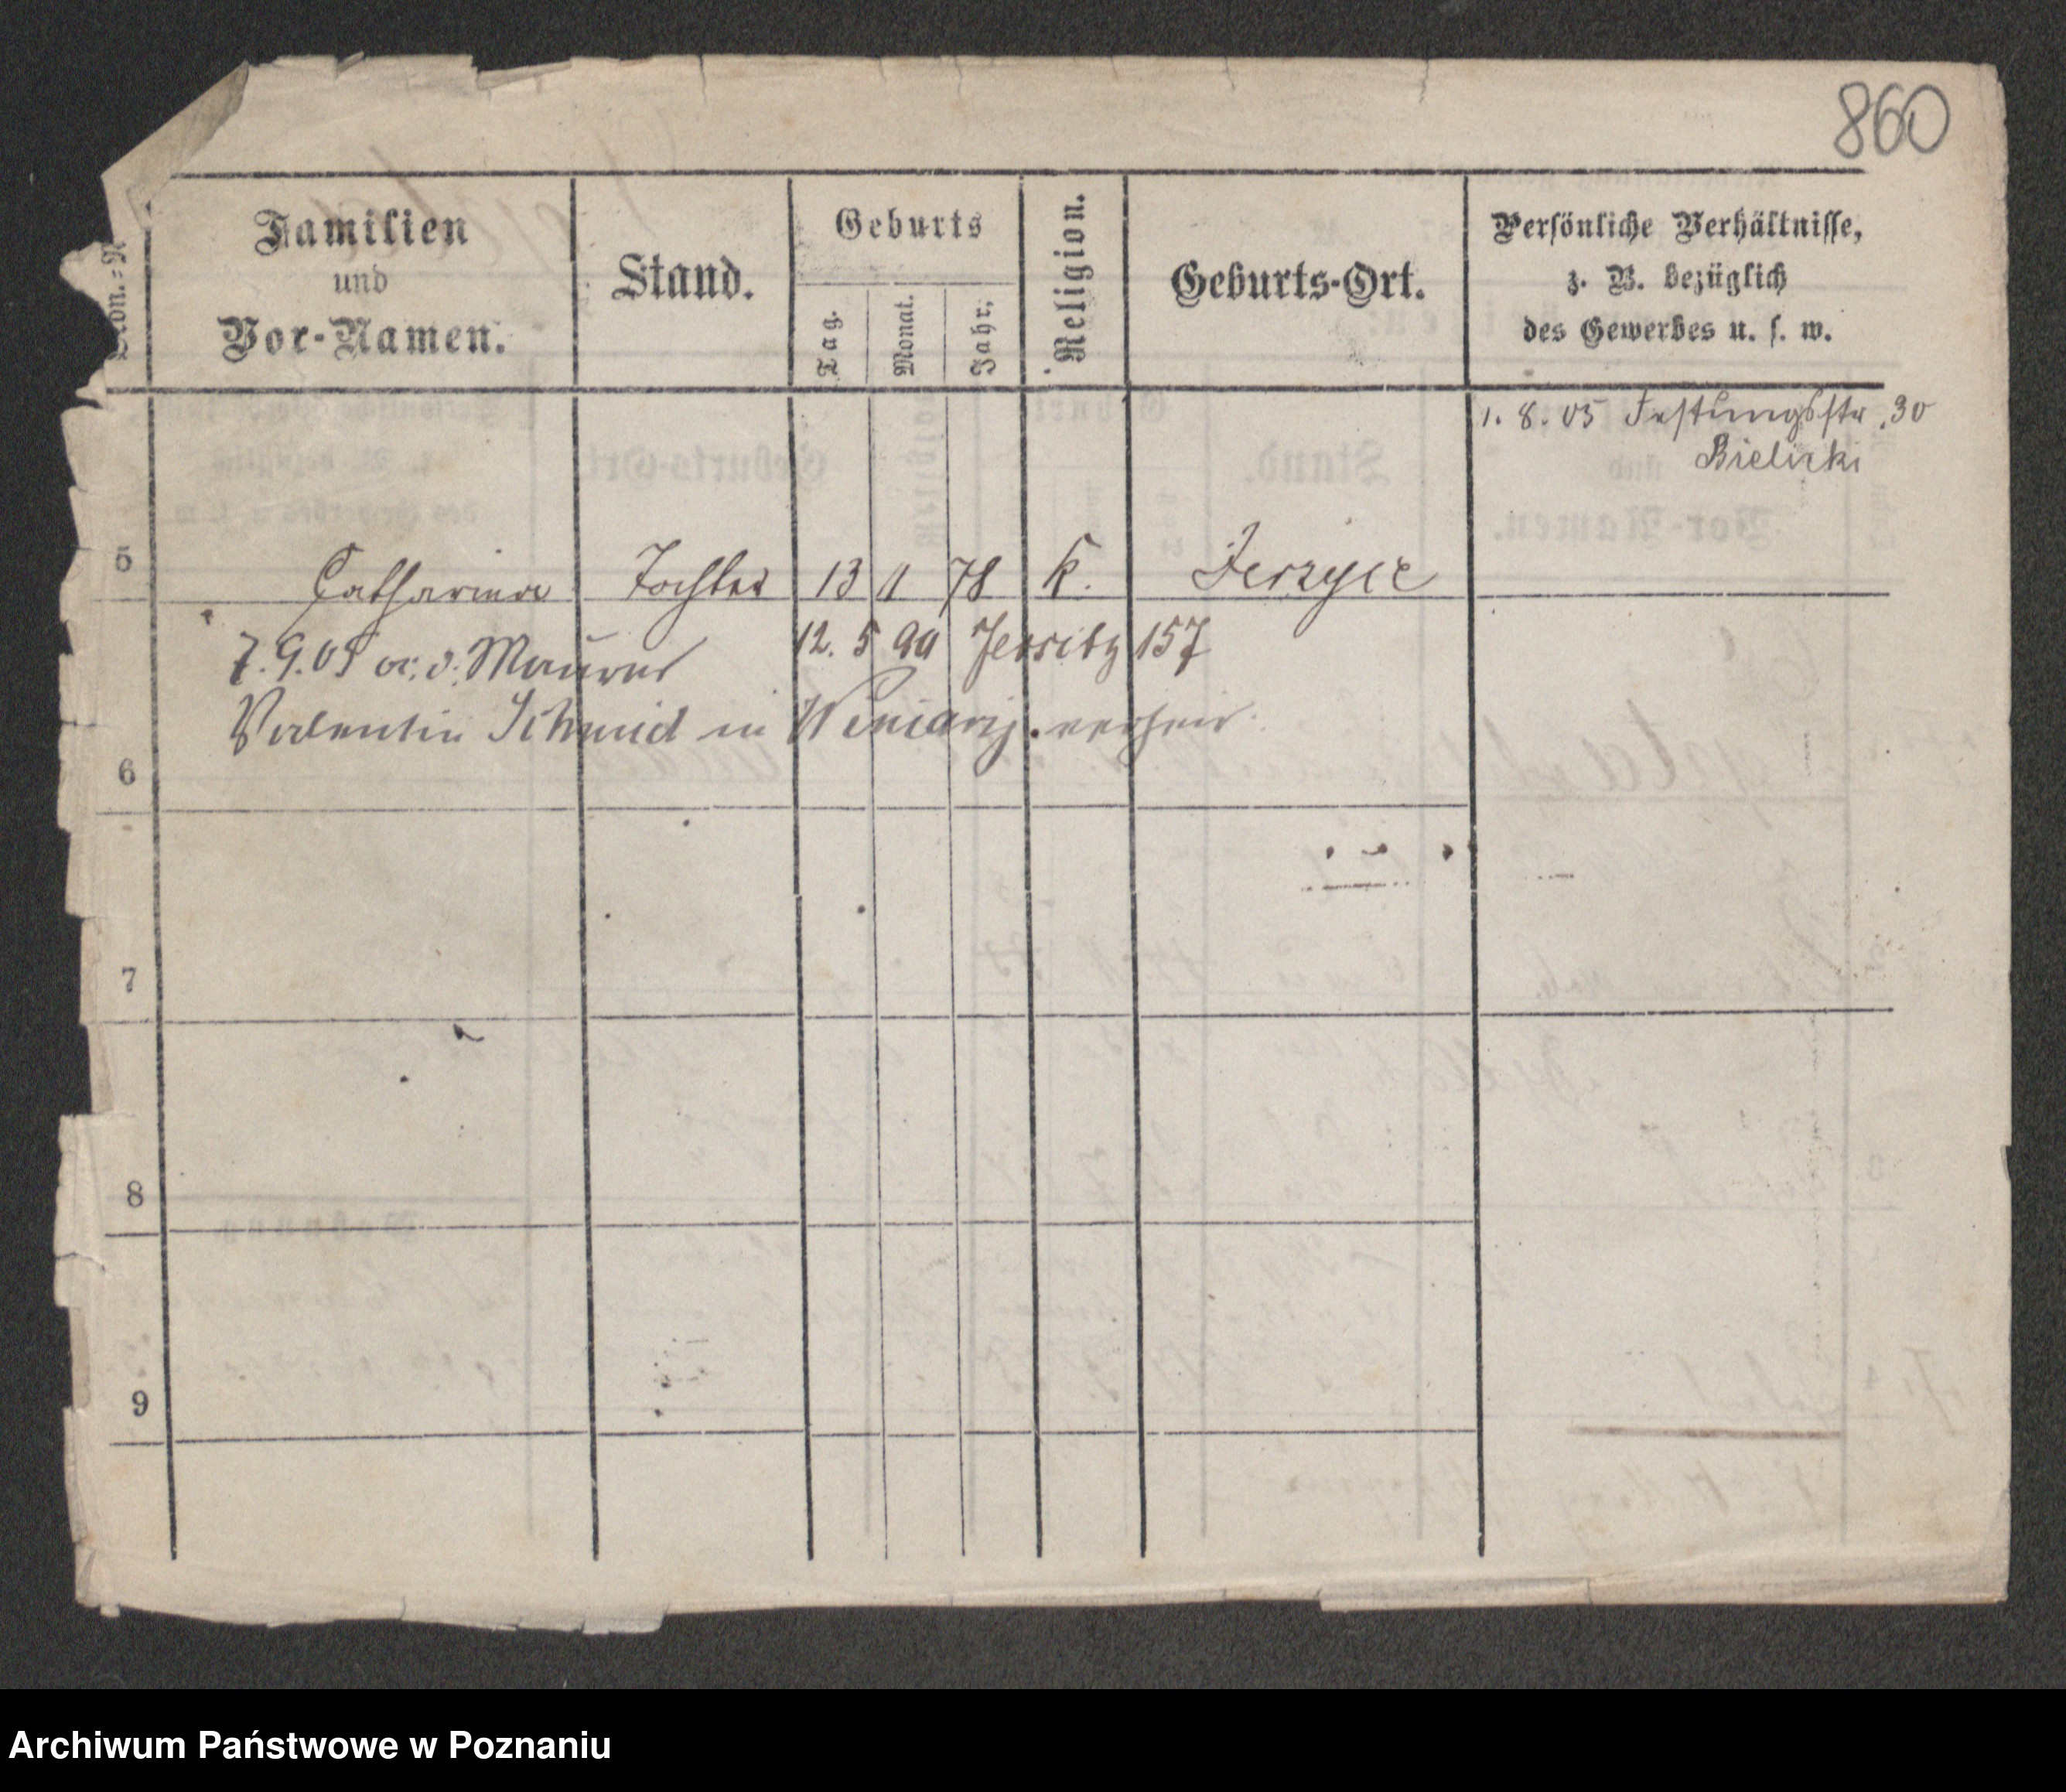 860
Kon.=N
Familien
und
Vor-Namen.
Stand.
Geburts
Tag.
Monat.
Jahr.
Religion.
Geburts-Ort.
Persönliche Verhältnisse,
z. B. bezüglich
des Gewerbes u. s. w.
1. 8. 05 Festungsstr. 30
Bielicki
5 Catharina Tochter 13 11 78 k. Jerzyce
12. 5 99 Jersitz 157
7. 9. 05 a. d. Maurer
Valentin Schmid in Winiary verheir.
6
7
8
9
Archiwum Państwowe w Poznaniu